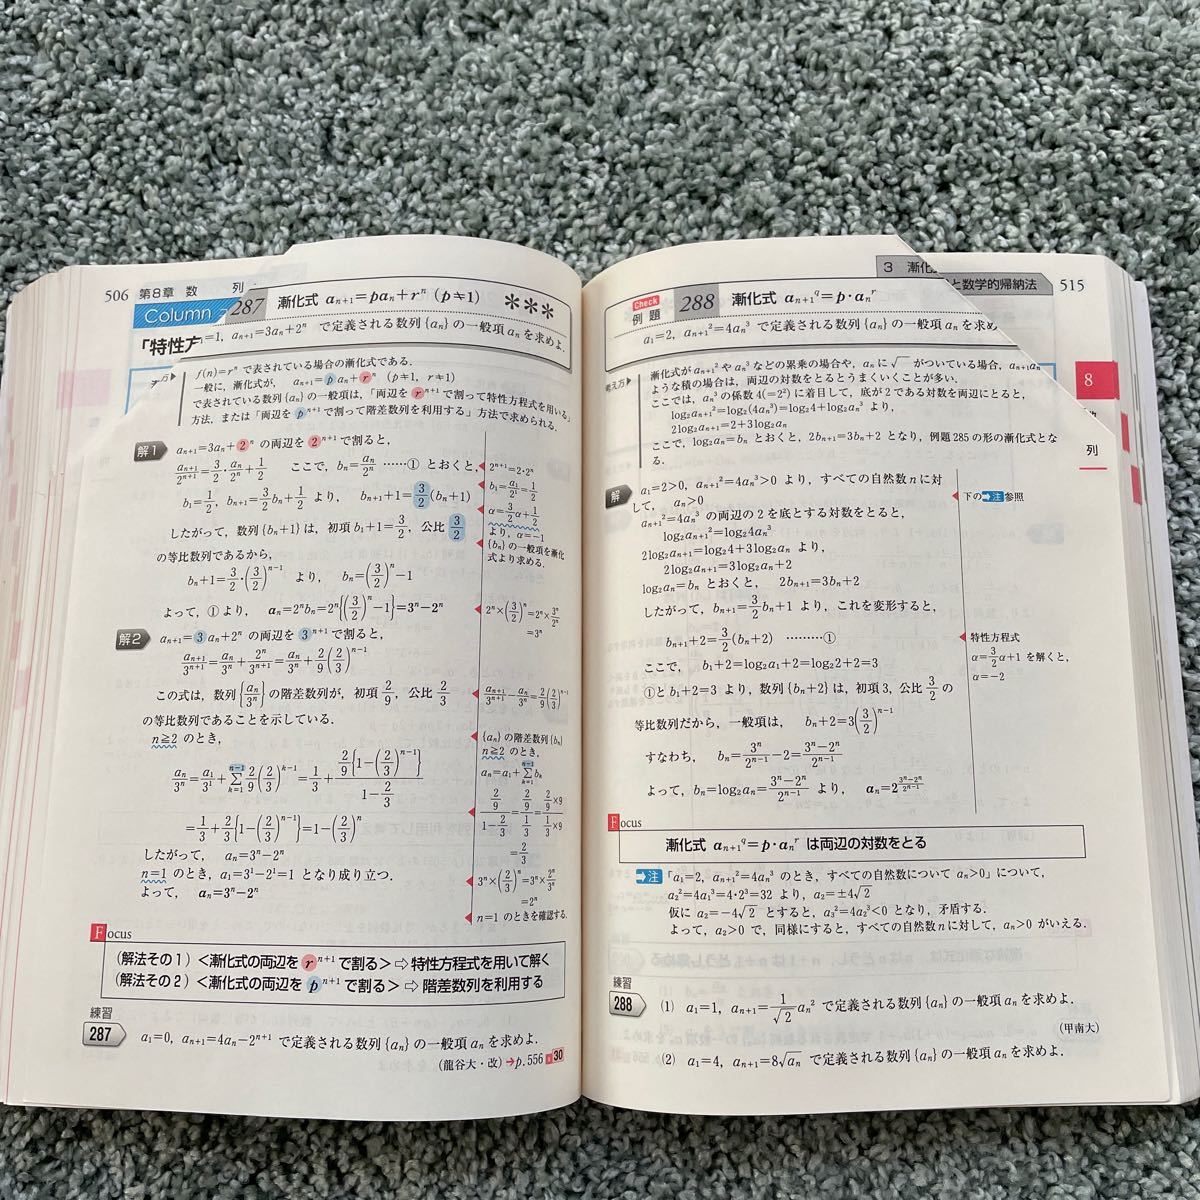 506 第8章 数 列
Column
「特性方
287 漸化式 aₙ₊₁=paₙ+rⁿ (p≠1) ***
=1, aₙ₊₁=3aₙ+2ⁿ で定義される数列{aₙ}の一般項aₙを求めよ.
f(n)=rⁿ で表されている場合の漸化式である.
一般に, 漸化式が, aₙ₊₁=paₙ+rⁿ (p≠1, r≠1)
で表されている数列{aₙ}の一般項は,「両辺を rⁿ⁺¹ で割って特性方程式を用いる」
方法, または「両辺を pⁿ⁺¹ で割って階差数列を利用する」方法で求められる.
解1 aₙ₊₁=3aₙ+2ⁿ の両辺を 2ⁿ⁺¹ で割ると,
aₙ₊₁/2ⁿ⁺¹=3/2・aₙ/2ⁿ+1/2 ここで, bₙ=aₙ/2ⁿ ……① とおくと,
b₁=1/2, bₙ₊₁=3/2bₙ+1/2 より, bₙ₊₁+1=3/2(bₙ+1)
したがって, 数列{bₙ+1}は, 初項 b₁+1=3/2, 公比 3/2
の等比数列であるから,
bₙ+1=3/2・(3/2)ⁿ⁻¹ より, bₙ=(3/2)ⁿ−1
よって, ①より, aₙ=2ⁿbₙ=2ⁿ{(3/2)ⁿ−1}=3ⁿ−2ⁿ
2ⁿ⁺¹=2・2ⁿ
b₁=a₁/2¹=1/2
α=3/2α+1/2
より, α=−1
{bₙ}の一般項を漸化
式より求める.
2ⁿ×(3/2)ⁿ=2ⁿ×3ⁿ/2ⁿ
=3ⁿ
解2 aₙ₊₁=3aₙ+2ⁿ の両辺を 3ⁿ⁺¹ で割ると,
aₙ₊₁/3ⁿ⁺¹=aₙ/3ⁿ+2ⁿ/3ⁿ⁺¹=aₙ/3ⁿ+2/9(2/3)ⁿ⁻¹
この式は, 数列{aₙ/3ⁿ}の階差数列が, 初項 2/9, 公比 2/3
の等比数列であることを示している.
n≧2 のとき,
aₙ/3ⁿ=a₁/3¹+Σ[k=1, n−1] 2/9(2/3)ᵏ⁻¹=1/3+2/9{1−(2/3)ⁿ⁻¹}/(1−2/3)
=1/3+2/3{1−(2/3)ⁿ⁻¹}=1−(2/3)ⁿ
したがって, aₙ=3ⁿ−2ⁿ
n=1 のとき, a₁=3¹−2¹=1 となり成り立つ.
よって, aₙ=3ⁿ−2ⁿ
aₙ₊₁/3ⁿ⁺¹−aₙ/3ⁿ=2/9(2/3)ⁿ⁻¹
{aₙ}の階差数列{bₙ}
n≧2 のとき,
aₙ=a₁+Σ[k=1, n−1] bₖ
(2/9)/(1−2/3)=(2/9)/(1/3)=(2/9×9)/(1/3×9)
=2/3
3ⁿ×(2/3)ⁿ=3ⁿ×2ⁿ/3ⁿ
=2ⁿ
n=1 のときを確認する.
Focus
(解法その1) <漸化式の両辺を rⁿ⁺¹ で割る> ⇨ 特性方程式を用いて解く
(解法その2) <漸化式の両辺を pⁿ⁺¹ で割る> ⇨ 階差数列を利用する
練習
287 a₁=0, aₙ₊₁=4aₙ−2ⁿ⁺¹ で定義される数列{aₙ}の一般項aₙを求めよ.
(龍谷大・改) →p.556 30
3 漸化 と数学的帰納法 515
Check
例題 288 漸化式 aₙ₊₁^q=p・aₙ^r
a₁=2, aₙ₊₁²=4aₙ³ で定義される数列{aₙ}の一般項aₙを求め
考え方 漸化式が aₙ₊₁² や aₙ³ などの累乗の場合や, aₙに√ がついている場合, aₙ₊₁aₙ
ような積の場合は, 両辺の対数をとるとうまくいくことが多い.
ここでは, aₙ³の係数4(=2²)に着目して, 底が2である対数を両辺にとると,
log₂aₙ₊₁²=log₂(4aₙ³)=log₂4+log₂aₙ³ より,
2log₂aₙ₊₁=2+3log₂aₙ
ここで, log₂aₙ=bₙ とおくと, 2bₙ₊₁=3bₙ+2 となり, 例題285の形の漸化式とな
る.
解 a₁=2>0, aₙ₊₁²=4aₙ³>0 より, すべての自然数nに対
して, aₙ>0
aₙ₊₁²=4aₙ³ の両辺の2を底とする対数をとると,
log₂aₙ₊₁²=log₂4aₙ³
2log₂aₙ₊₁=log₂4+3log₂aₙ より,
2log₂aₙ₊₁=3log₂aₙ+2
log₂aₙ=bₙ とおくと, 2bₙ₊₁=3bₙ+2
したがって, bₙ₊₁=3/2bₙ+1 より, これを変形すると,
bₙ₊₁+2=3/2(bₙ+2) ………①
ここで, b₁+2=log₂a₁+2=log₂2+2=3
①と b₁+2=3 より, 数列{bₙ+2}は, 初項3, 公比 3/2 の
等比数列だから, 一般項は, bₙ+2=3(3/2)ⁿ⁻¹
すなわち, bₙ=3ⁿ/2ⁿ⁻¹−2=(3ⁿ−2ⁿ)/2ⁿ⁻¹
よって, bₙ=log₂aₙ=(3ⁿ−2ⁿ)/2ⁿ⁻¹ より, aₙ=2^((3ⁿ−2ⁿ)/2ⁿ⁻¹)
下の→注参照
特性方程式
α=3/2α+1 を解くと,
α=−2
Focus
漸化式 aₙ₊₁^q=p・aₙ^r は両辺の対数をとる
→注 「a₁=2, aₙ₊₁²=4aₙ³ のとき, すべての自然数について aₙ>0」について,
a₂²=4a₁³=4・2³=32 より, a₂=±4√2
仮に a₂=−4√2 とすると, a₃²=4a₂³<0 となり, 矛盾する.
よって, a₂>0 で, 同様にすると, すべての自然数nに対して, aₙ>0 がいえる.
練習
288 (1) a₁=1, aₙ₊₁=1/√2 aₙ² で定義される数列{aₙ}の一般項aₙを求めよ.
(甲南大)
(2) a₁=4, aₙ₊₁=8√aₙ で定義される数列{aₙ}の一般項aₙを求めよ.
8
列